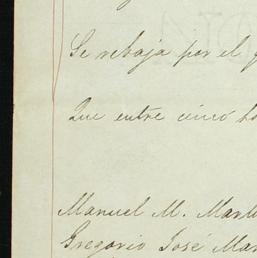 Se rebaja por el
Que entre cinco
Manuel M.
Gregorio José